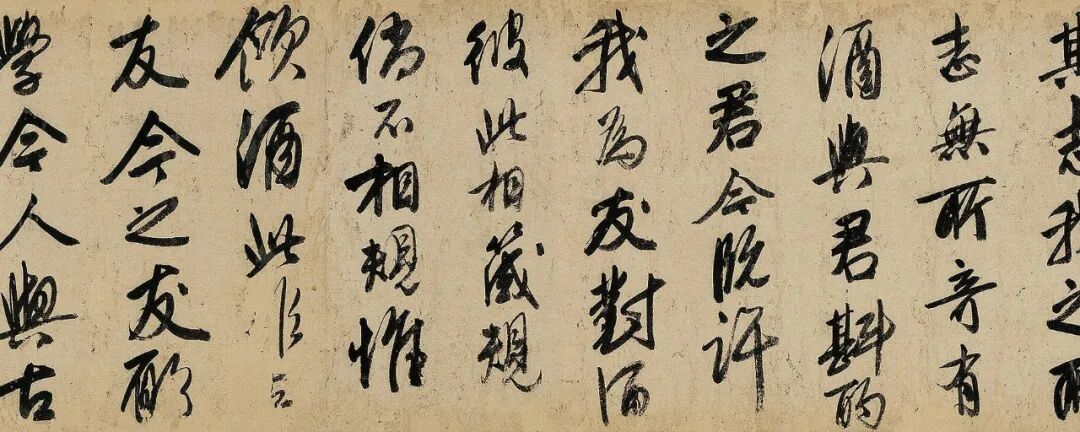 其志我之所
志無所寄有
酒與君斟酌
之君今既許
我為友對酒
彼此相箴規
倘不相規惟
飲酒此
友今之友所
學今人與古